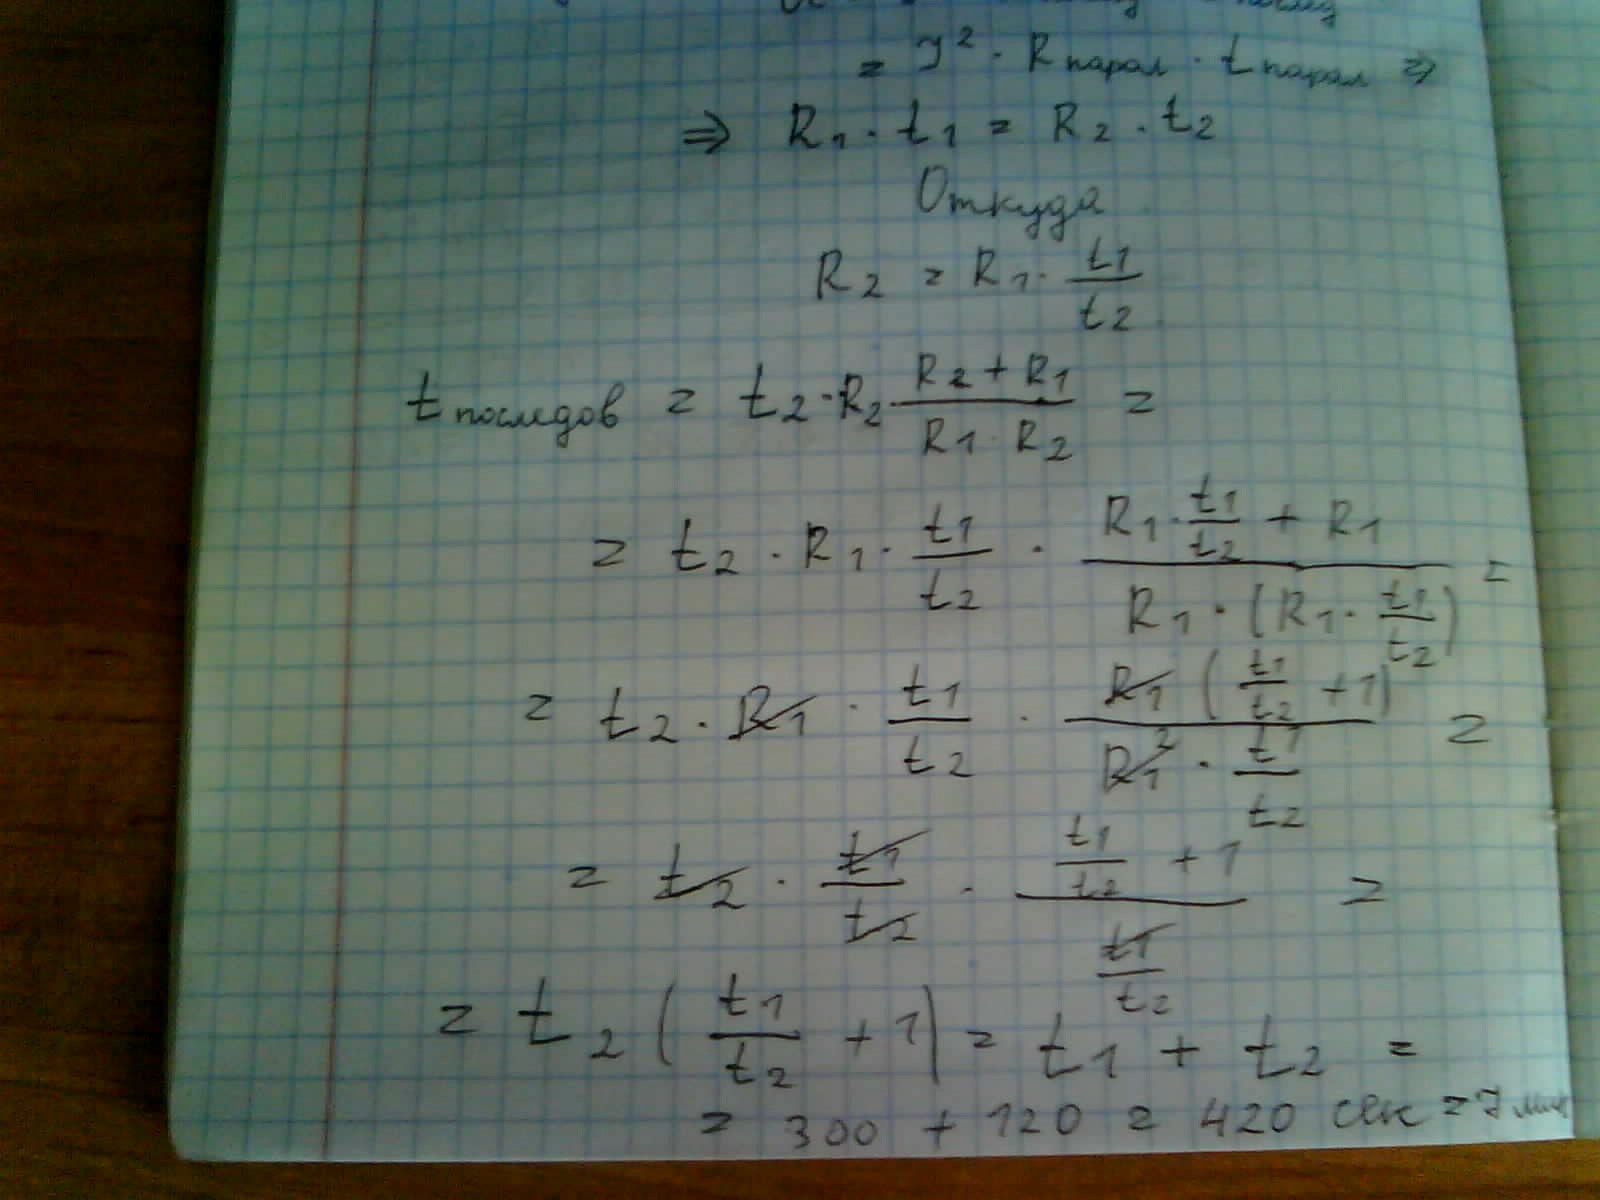 = J² · Rпарал · tпарал ⇒
⇒ R1 · t1 = R2 · t2
Откуда
R2 = R1 · t1/t2
tпоследов = t2 · R2 · (R2 + R1)/(R1 · R2) =
= t2 · R1 · t1/t2 · (R1 · t1/t2 + R1)/(R1 · (R1 · t1/t2)) =
= t2 · R1 · t1/t2 · (R1 (t1/t2 + 1))/(R1² · t1/t2) =
= t2 · t1/t2 · (t1/t2 + 1)/(t1/t2) =
= t2 (t1/t2 + 1) = t1 + t2 =
= 300 + 120 = 420 сек = 7 мин